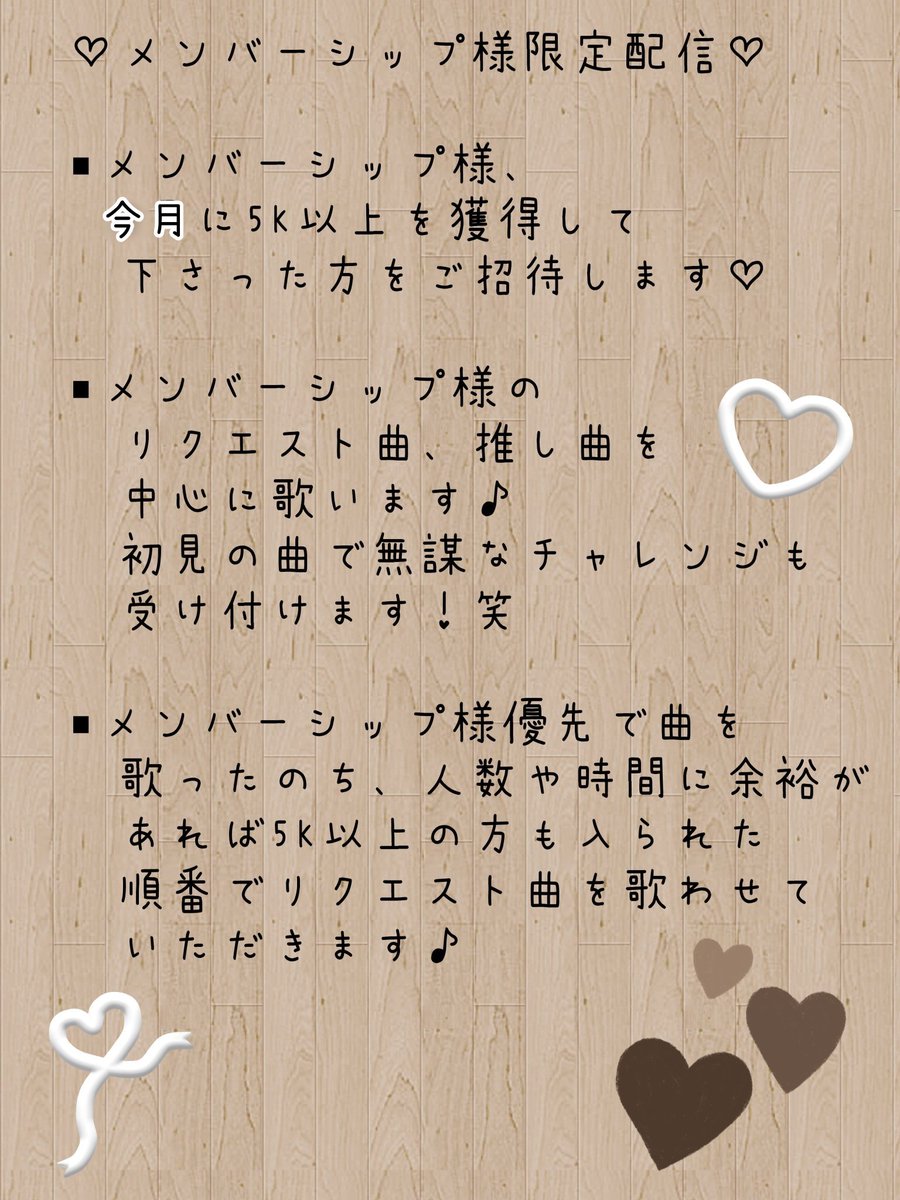 ♡メンバーシップ様限定配信♡
▪メンバーシップ様、
今月に5K以上を獲得して
下さった方をご招待します♡
▪メンバーシップ様の
リクエスト曲、推し曲を
中心に歌います♪
初見の曲で無謀なチャレンジも
受け付けます！笑
▪メンバーシップ様優先で曲を
歌ったのち、人数や時間に余裕が
あれば5K以上の方も入られた
順番でリクエスト曲を歌わせて
いただきます♪